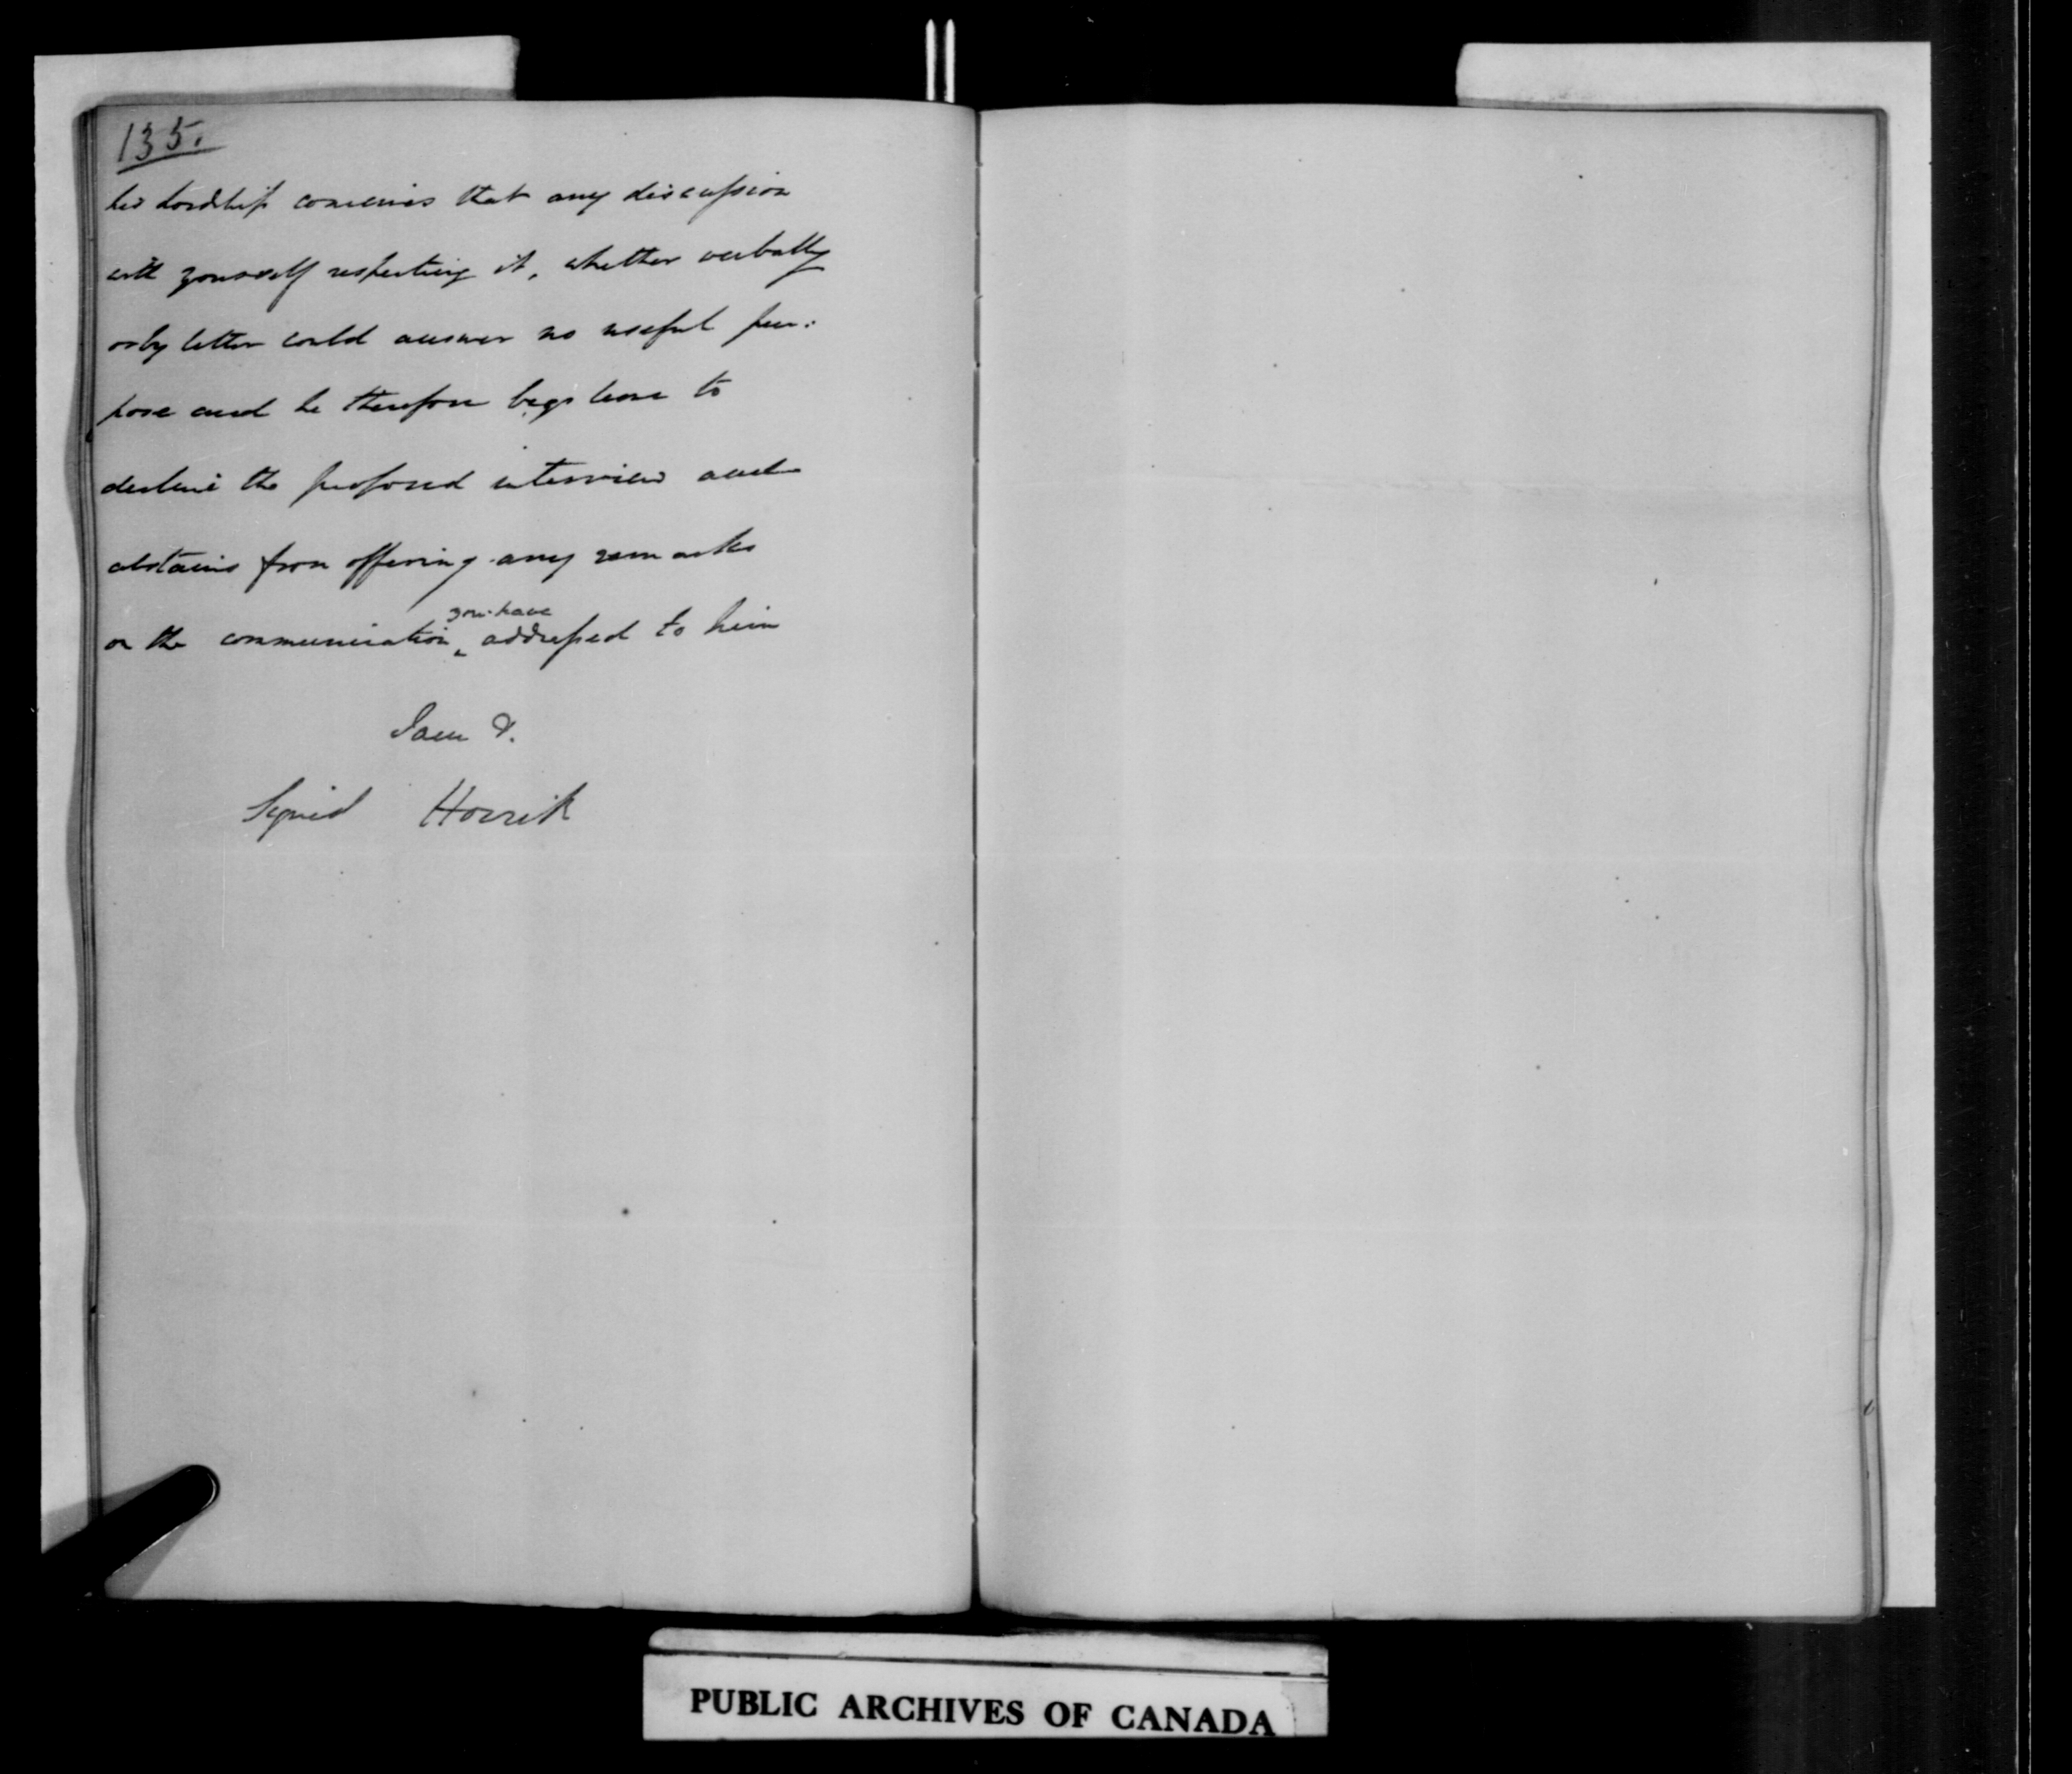 135.
his Lordship conceives that any discussion
with yourself respecting it, whether verbally
or by letter could answer no useful pur:
pose and he therefore begs leave to
decline the proposed interview and
abstains from offering any remarks
you have
on the communication ‸ addressed to him
I am &.
Signed Howick
PUBLIC ARCHIVES OF CANADA